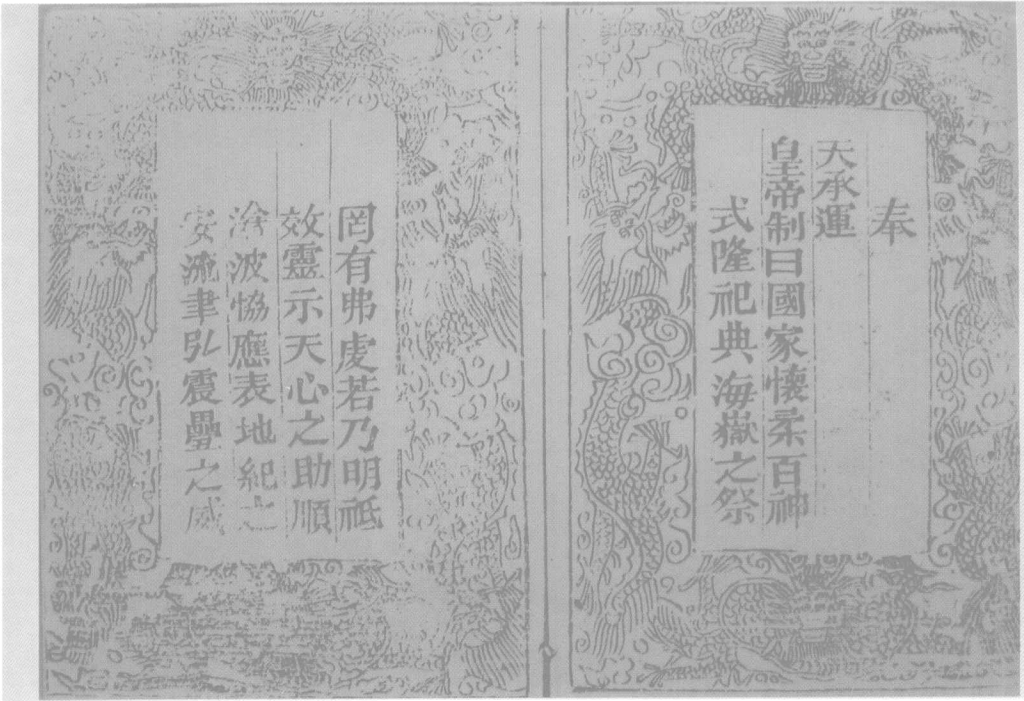 奉
天承運
皇帝制曰國家懷柔百神
式隆祀典海嶽之祭
罔有弗虔若乃明祗
效靈示天心之助順
滄波恊應表地紀之
安流聿弘震疊之威